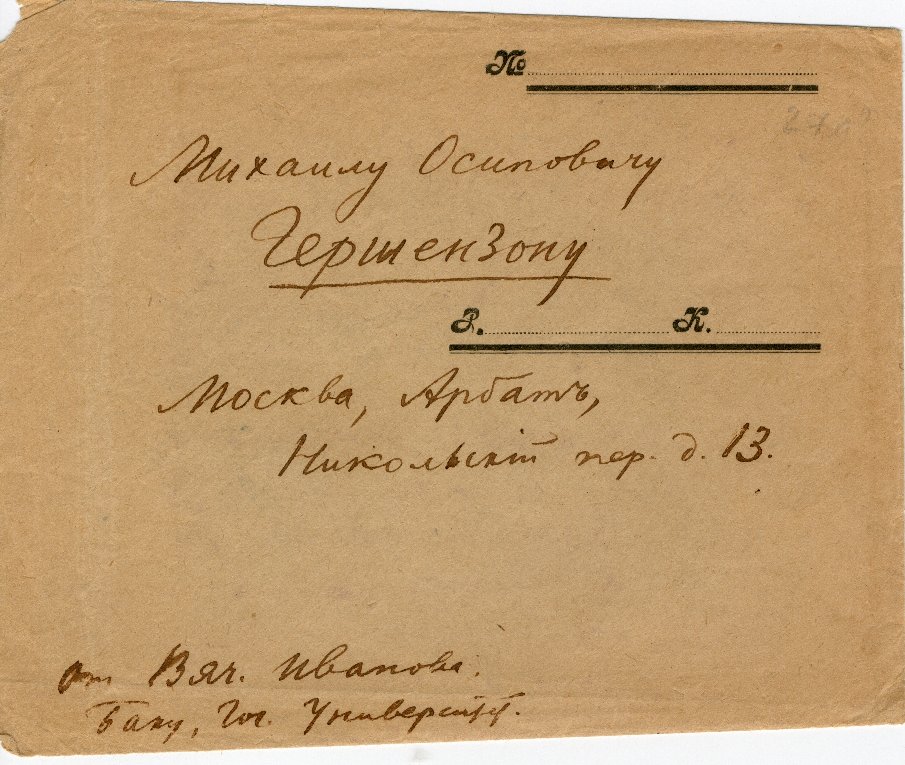 №
Михаилу Осиповичу
Гершензону
Р. К.
Москва, Арбатъ,
Никольскій пер. д. 13.
от Вяч. Иванова.
Баку, Гос. Университет.